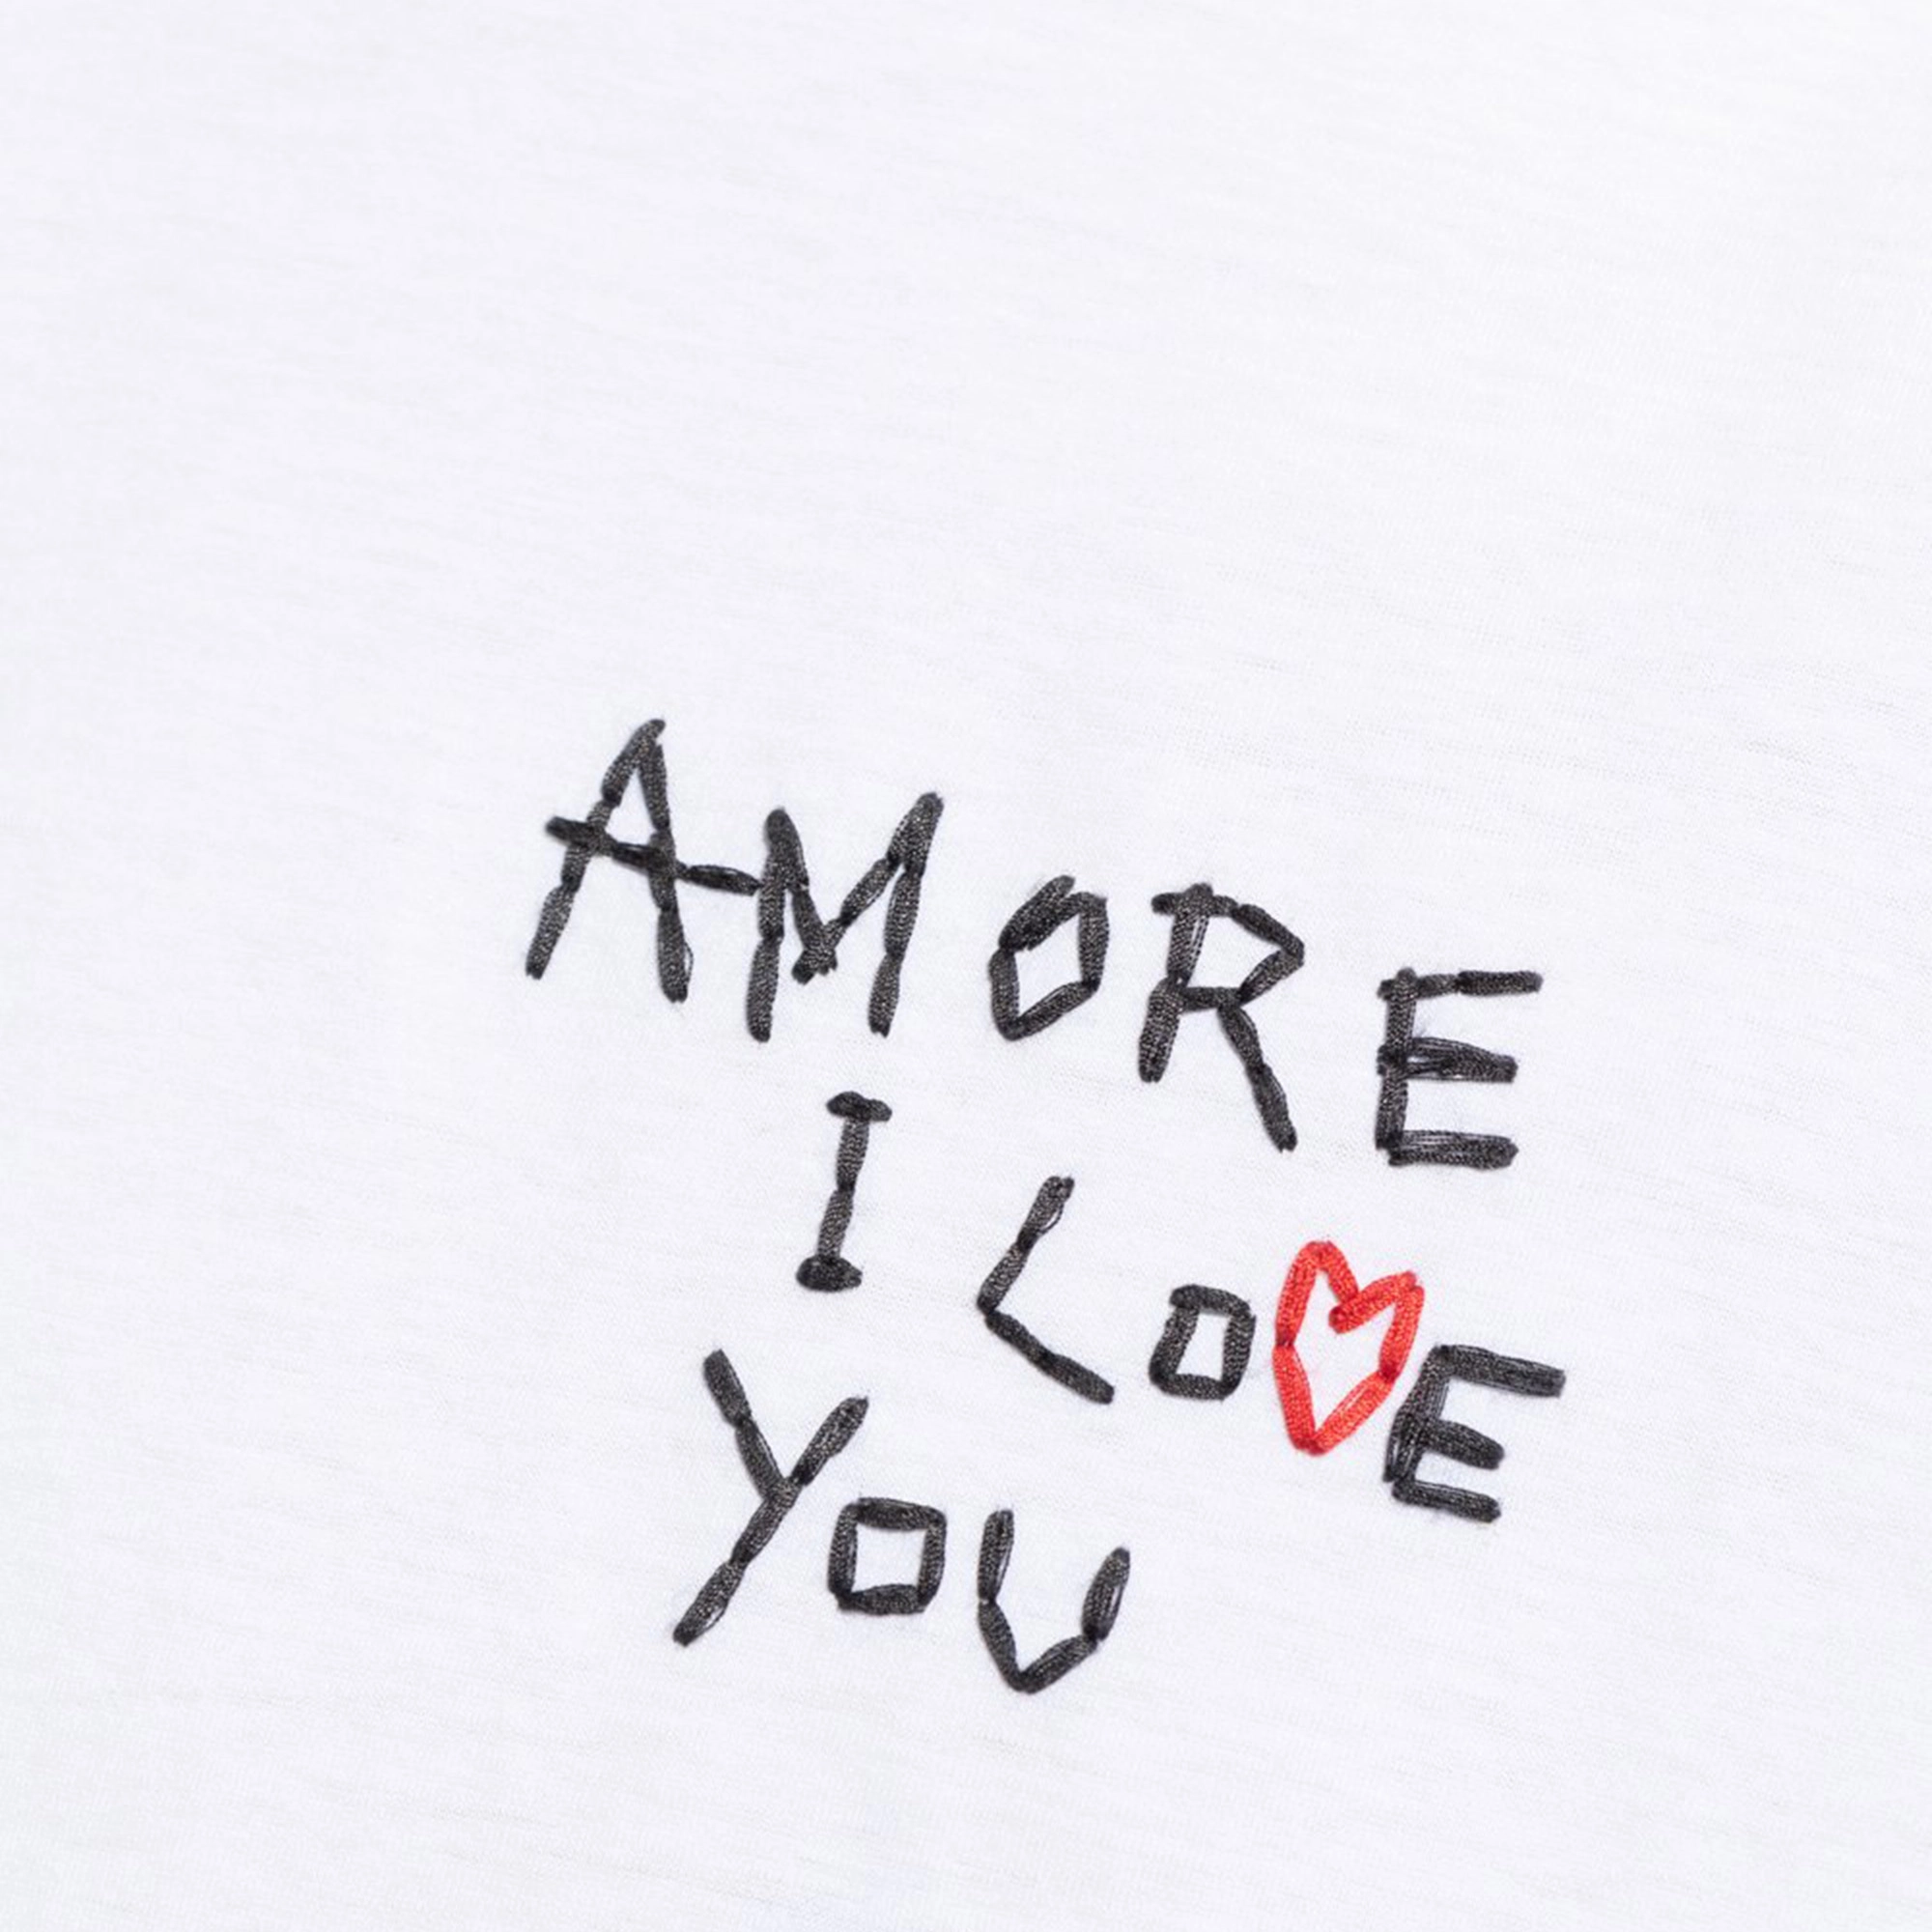 AMORE
I LO♥E
YOU